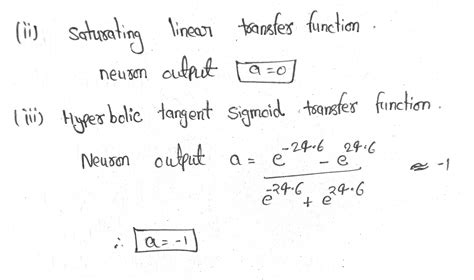 (ii) Saturating linear transfer function.
neuron output a=0
(iii) Hyperbolic tangent Sigmoid transfer function.
Neuron output a = (e^-24.6 - e^24.6) / (e^-24.6 + e^24.6) ≈ -1
∴ a=-1